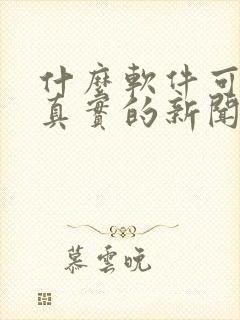 什麼軟件可
真實的新聞
慕雲晚